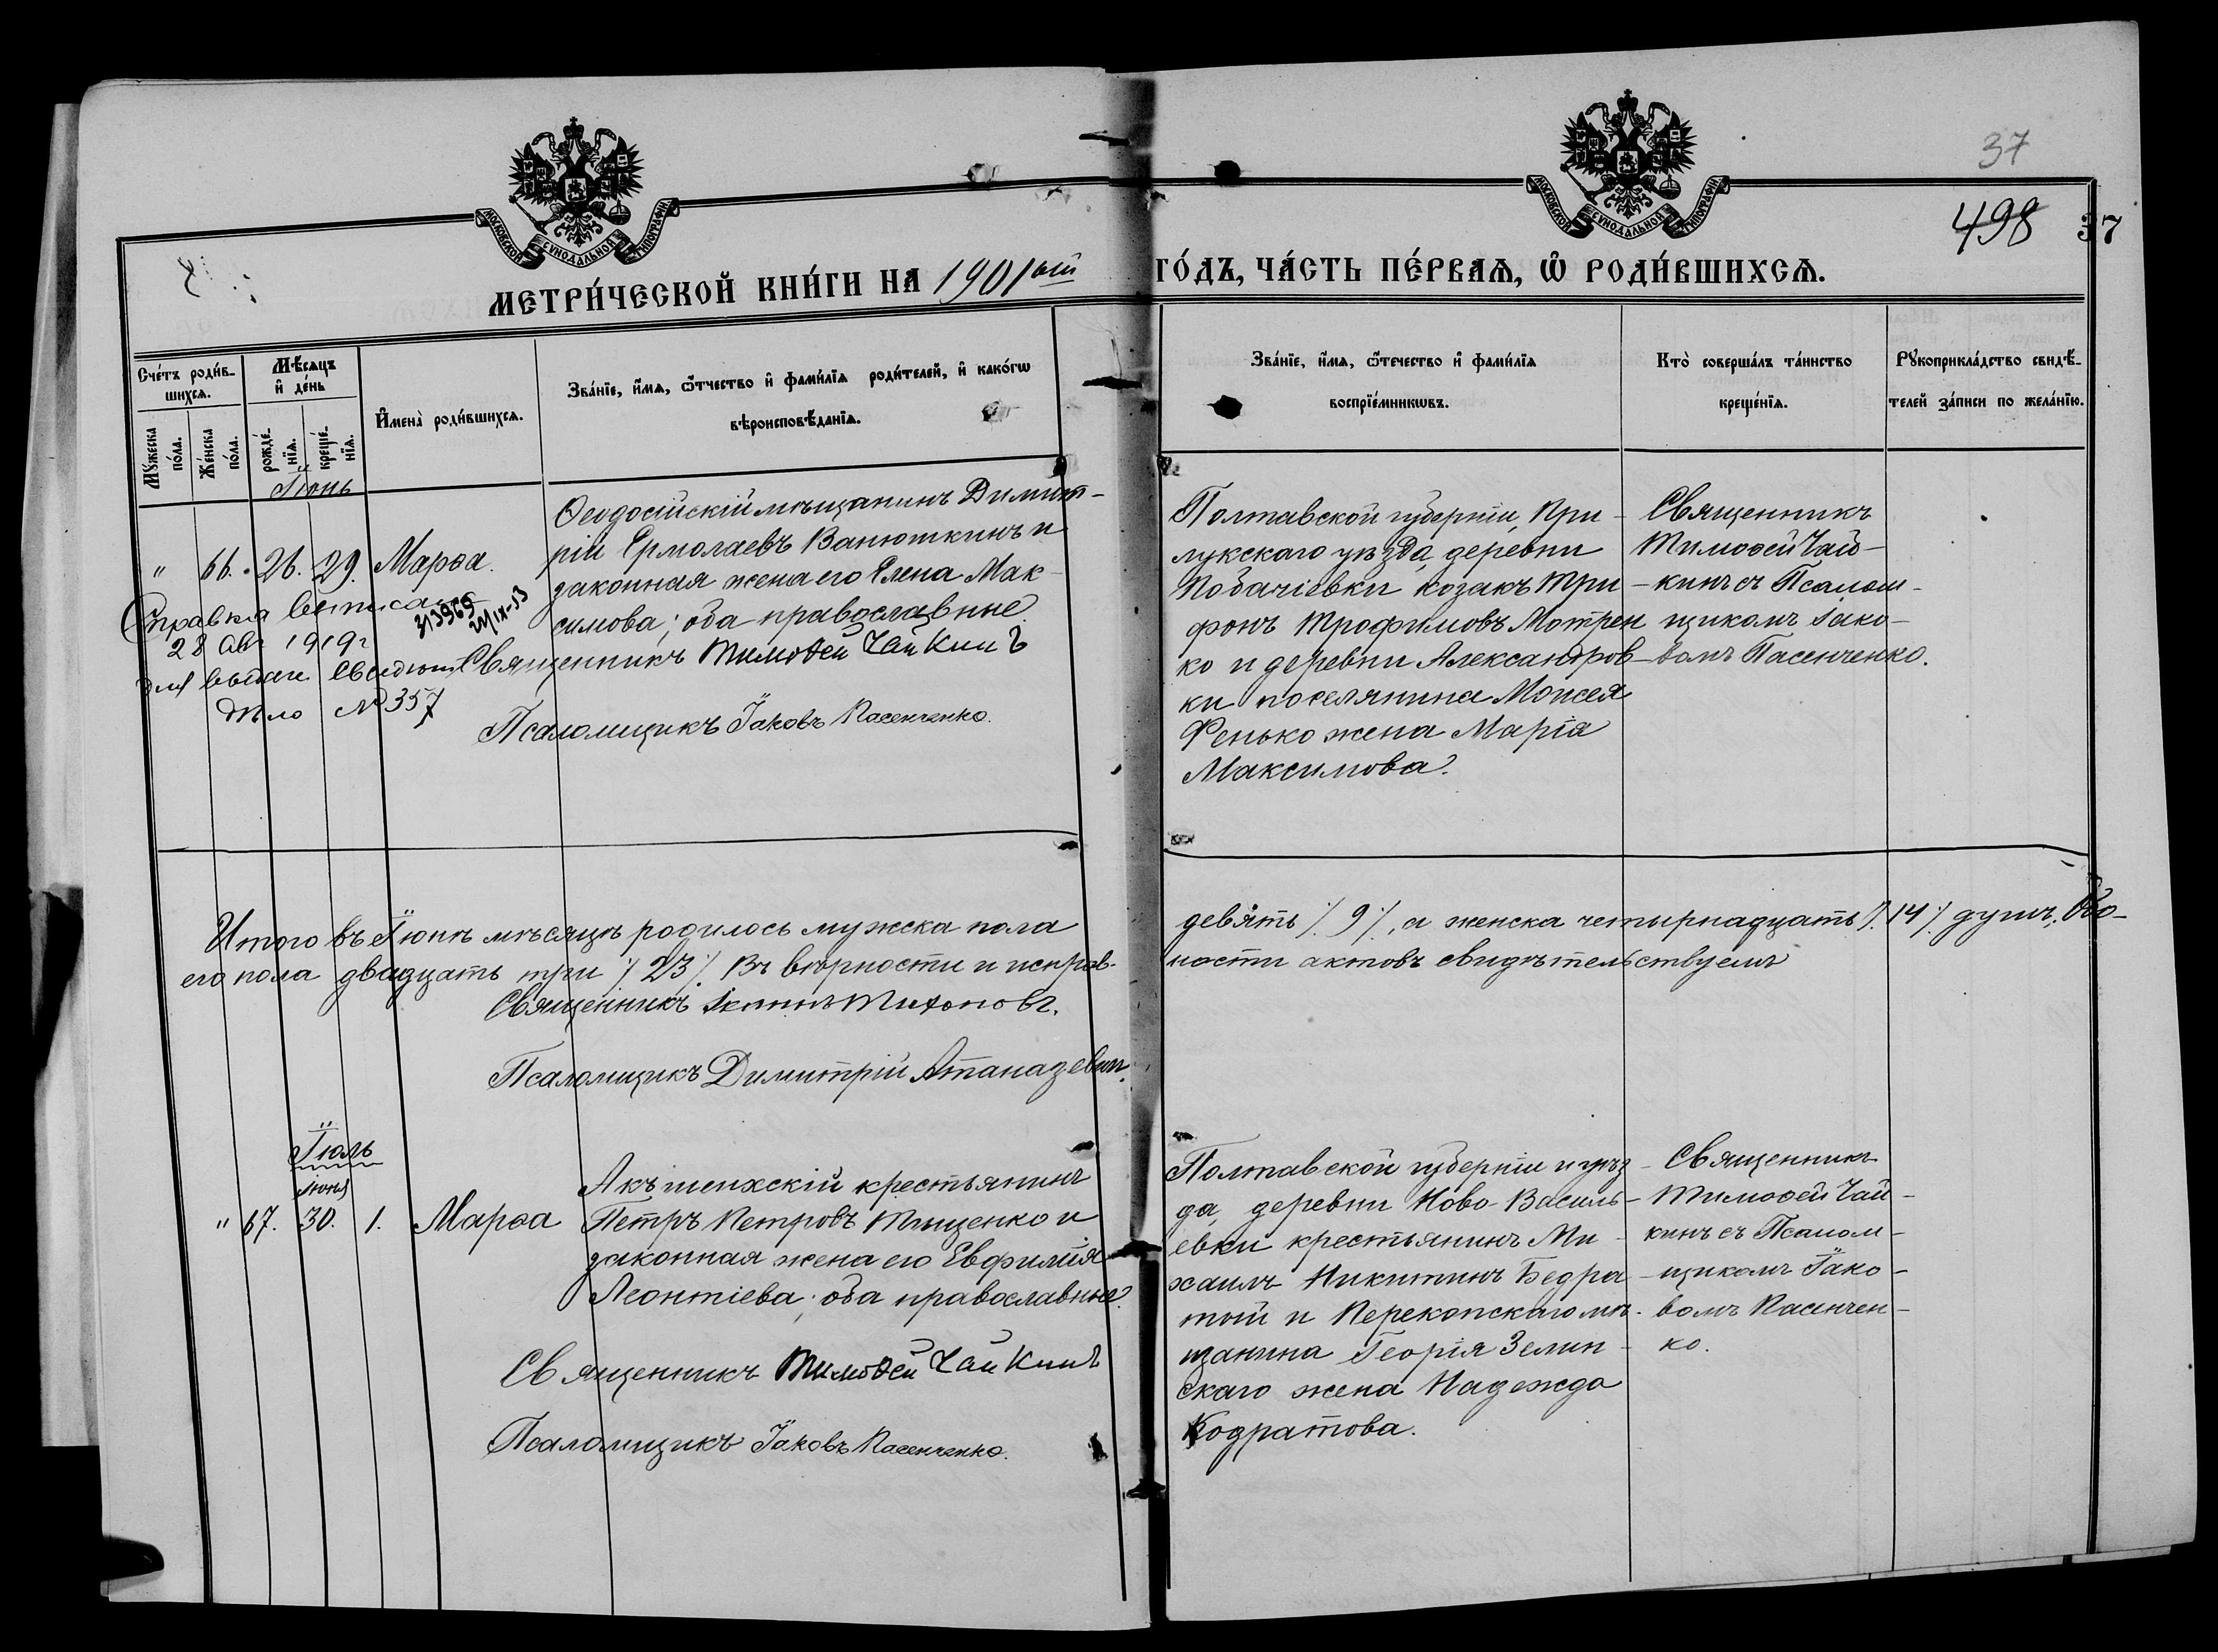 37
498
37
МОСКОВСКОЙ СѴНОДАЛЬНОЙ ТИПОГРАФІИ
МОСКОВСКОЙ СѴНОДАЛЬНОЙ ТИПОГРАФІИ
МЕТРИ́ЧЕСКОЙ КНИ́ГИ НА 1901ый ГО́ДЪ, ЧА́СТЬ ПЕ́РВАѦ, Ѽ РОДИ́ВШИХСѦ.
Сче́тъ роди́в-
шихсѧ.
Мꙋ́жеска
по́ла.
Же́нска
по́ла.
Мѣ́сѧцъ
и҆ де́нь
рожде́-
нїѧ.
креще́-
нїѧ.
И҆мена̀ роди́вшихсѧ.
Зва́нїе, и҆́мѧ, ѻ҆́тчество и҆ фами́лїѧ роди́телей, и҆ како́гѡ
вѣроисповѣ́данїѧ.
Зва́нїе, и҆́мѧ, ѻ҆те́чество и҆ фами́лїѧ
воспрїе́мникѡвъ.
Кто̀ соверша́лъ та́инство
креще́нїѧ.
Рꙋкоприкла́дство свидѣ́-
телей за́писи по жела́нїю.
Іюнь
" 66. 26. 29. Марѳа.
Ѳеодосійскій мѣщанинъ Димит-
рій Ермолаевъ Ванюшкинъ и
законная жена его Елена Мак-
симова; оба православные.
Священникъ Тимоѳей Чайкинъ
Псаломщикъ Іаковъ Пасенченко.
Справка выписана
28 авг 1919 г
для выдачи свидѣт
дѣло № 357
313969
21/IX-53
Полтавской губерніи, При-
лукскаго уѣзда, деревни
Побачіевки козакъ Три-
фонъ Трофимовъ Мотрен
ко и деревни Александров-
ки поселянина Моисея
Фенько жена Марія
Максимова.
Священникъ
Тимоѳей Чай-
кинъ съ Псалом-
щикомъ Іако-
вомъ Пасенченко.
Итого въ Іюнѣ мѣсяцѣ родилось мужска пола девять ٪ 9 ٪, а женска четырнадцать ٪ 14 ٪ душъ, Обо-
его пола двадцать три ٪ 23 ٪. Въ вѣрности и исправ-ности актовъ свидѣтельствуемъ
Священникъ Іоаннъ Тихоновъ.
Псаломщикъ Димитрій Атаназевич.
Іюль
Іюня
" 67. 30. 1. Марѳа
Акъ-шеихскій крестьянинъ
Петръ Петровъ Тищенко и
законная жена его Евфимія
Леонтіева; оба православные.
Священникъ Тимоѳей Чайкинъ
Псаломщикъ Іаковъ Пасенченко.
Полтавской губерніи и уѣз-
да, деревни Ново-Василь-
евки крестьянинъ Ми-
хаилъ Никитинъ Бедра-
тый и Перекопскаго мѣ-
щанина Георгія Зелин-
скаго жена Надежда
Кодратова.
Священникъ
Тимоѳей Чай-
кинъ съ Псалом-
щикомъ Іако-
вомъ Пасенчен-
ко.